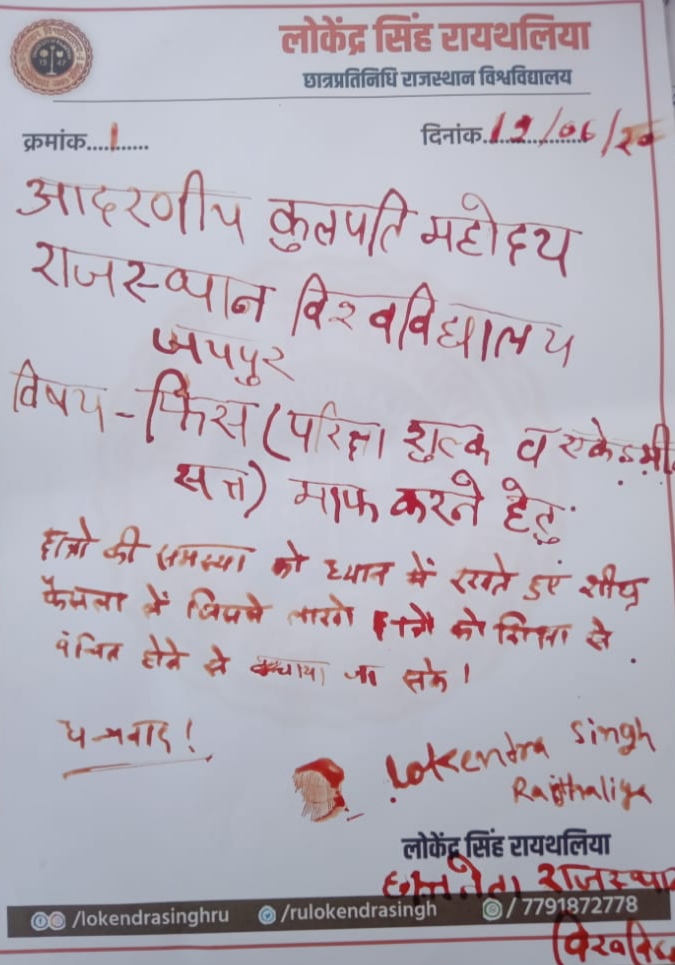 लोकेंद्र सिंह रायथलिया
छात्रप्रतिनिधि राजस्थान विश्वविद्यालय
क्रमांक....1......
दिनांक.19/06/20
आदरणीय कुलपति महोदय
राजस्थान विश्वविद्यालय
जयपुर
विषय - फिस (परिक्षा शुल्क व एकेडमी
सत्र) माफ करने हेतु
छात्रो की समस्या को ध्यान में रखते हुएं शीघ्र
फैसला लें जिससे लाखो छात्रो को शिक्षा से
वंचित होने से बचाया जा सके।
धन्यवाद!
Lokendra Singh
Raithaliya
लोकेंद्र सिंह रायथलिया
छात्रनेता राजस्थान
/lokendrasinghru /rulokendrasingh / 7791872778